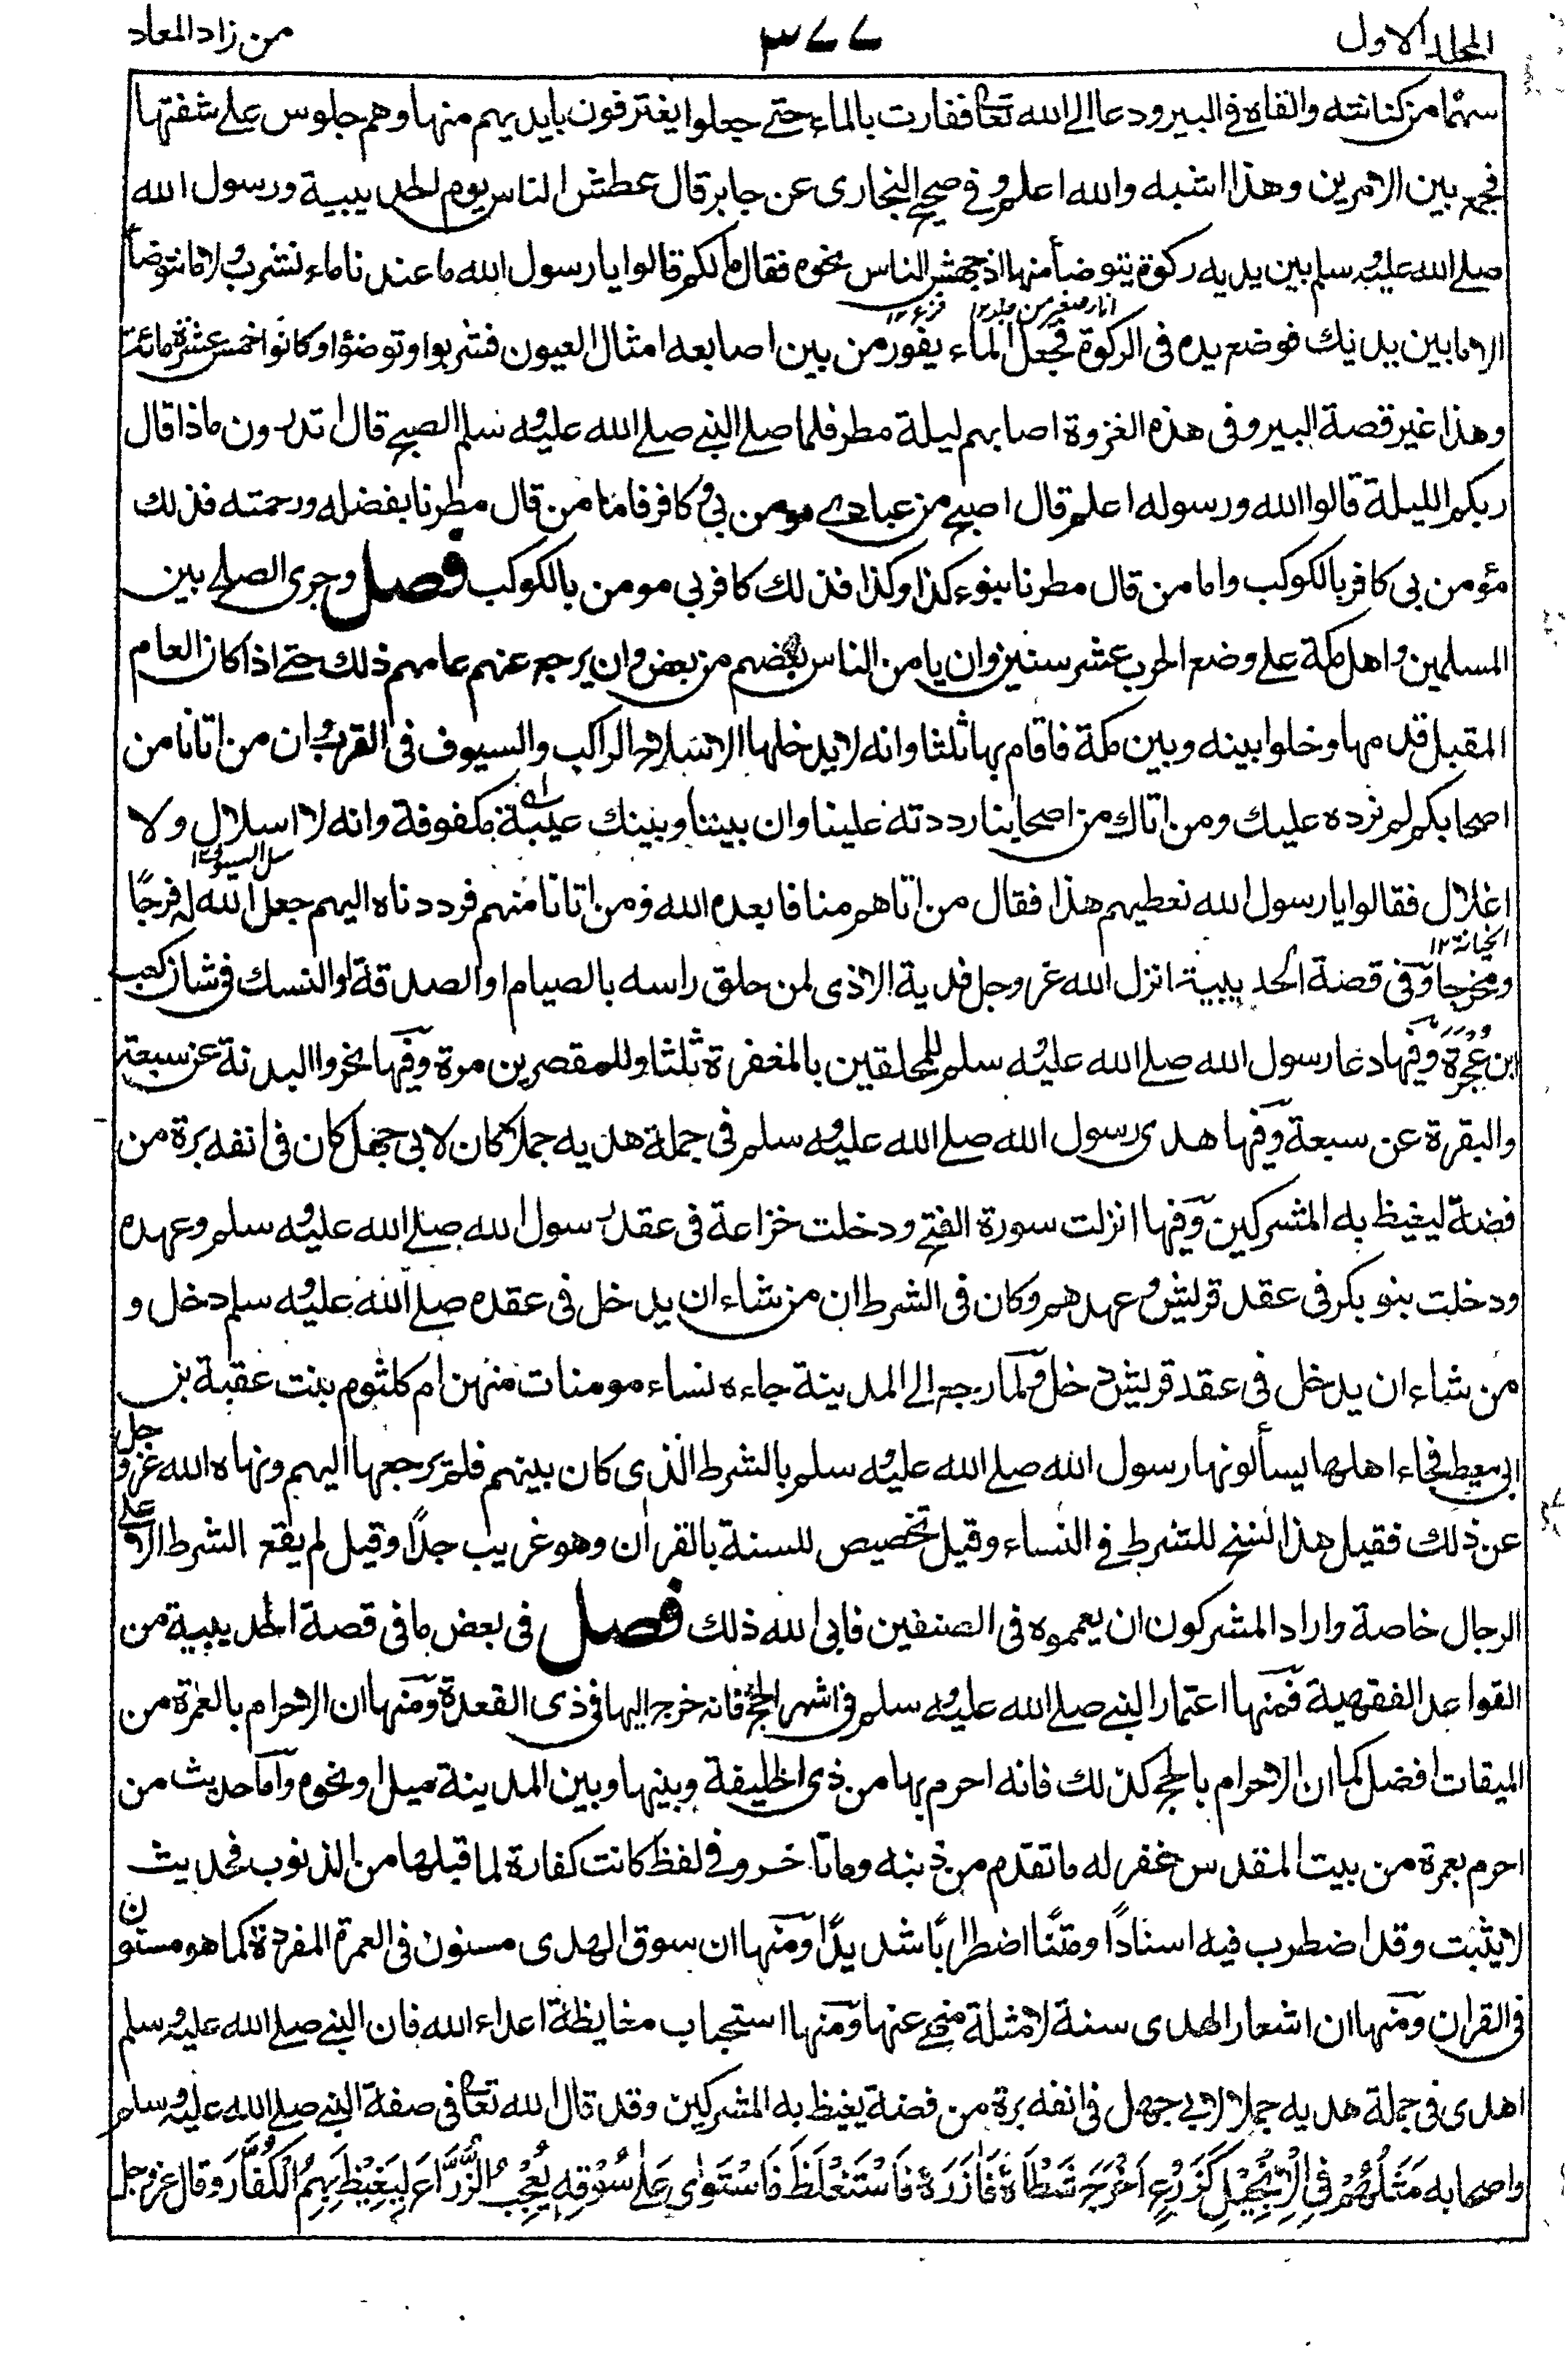 المجلد الاول
٣٧٧
من زاد المعاد
سهما من كنانته والقاه في البير ودعا الى الله تعا ففارت بالماء حتى جعلوا يغترفون بايديهم منها وهم جلوس على شفتها
فجمع بين الامرين وهذا اشبه والله اعلم و في صحيح البخارى عن جابر قال عطش الناس يوم الحديبية ورسول الله
صلى الله عليه وسلم بين يديه ركوة يتوضأ منها اذ جهش الناس نحوه فقال ما لكم قالوا يا رسول الله ما عندنا ماء نشرب ولا ما نتوضأ
اناء صغير من جلد ١٢ فزع ١٢
الا ما بين يديك فوضع يده فى الركوة فجعل الماء يفور من بين اصابعه امثال العيون فشربوا وتوضؤا وكانوا خمس عشرة مائة
وهذا غير قصة البير وفى هذه الغزوة اصابهم ليلة مطر فلما صلى النبي صلى الله عليه وسلم الصبح قال اتدرون ماذا قال
ربكم الليلة قالوا الله ورسوله اعلم قال اصبح من عبادى مومن بي و كافر فاما من قال مطرنا بفضل الله ورحمته فذلك
مؤمن بى كافر بالكوكب واما من قال مطرنا بنوء كذا وكذا فذلك كافر بى مومن بالكوكب فصل وجرى الصلح بين
المسلمين و اهل مكة على وضع الحرب عشر سنين وان يامن الناس بعضهم من بعض وان يرجع عنهم عامهم ذلك حتى اذا كان العام
المقبل قدمها وخلوا بينه وبين مكة فاقام بها ثلثا وانه لا يدخلها الا بسلاح الراكب والسيوف فى القرب و ان من اتانا من
اصحابكم لم نرده عليك ومن اتاك من اصحابنا رددته علينا وان بيننا وبينك عيبة مكفوفة وانه لا اسلال ولا
سل السيوف ١٢
اغلال فقالوا يا رسول الله نعطيهم هذا فقال من اتاهم منا فابعده الله ومن اتانا منهم فرددناه اليهم جعل الله له فرجًا
الخيانة ١٢
ومخرجا وفى قصة الحديبية انزل الله عز وجل فدية الاذى لمن حلق راسه بالصيام او الصدقة او النسك فى شان كعب
ابن عُجرة وفيها دعا رسول الله صلى الله عليه وسلم للمحلقين بالمغفرة ثلثا وللمقصرين مرة وفيها نحروا البدنة عن سبعة
والبقرة عن سبعة وفيها هدى رسول الله صلى الله عليه وسلم فى جملة هديه جملا كان لابى جهل كان فى انفه برة من
فضة ليغيظ به المشركين وفيها انزلت سورة الفتح ودخلت خزاعة فى عقد رسول الله صلى الله عليه وسلم وعهده
ودخلت بنو بكر فى عقد قريش و عهدهم وكان فى الشرط ان من شاء ان يدخل فى عقده صلى الله عليه وسلم دخل و
من شاء ان يدخل فى عقد قريش دخل ولما رجع الى المدينة جاءه نساء مومنات منهن ام كلثوم بنت عقبة بن
ابى معيط فجاء اهلها يسألونها رسول الله صلى الله عليه وسلم بالشرط الذى كان بينهم فلم يرجعها اليهم ونهاه الله عز و جل
عن ذلك فقيل هذا النسخ للشرط فى النساء وقيل تخصيص للسنة بالقران وهو غريب جدًا وقيل لم يقع الشرط الا على
الرجال خاصة واراد المشركون ان يعمموه فى الصنفين فابى الله ذلك فصل فى بعض ما فى قصة الحديبية من
القواعد الفقهية فمنها اعتمار النبي صلى الله عليه وسلم فى اشهر الحج فانه خرج اليها فى ذى القعدة ومنها ان الاحرام بالعمرة من
الميقات افضل كما ان الاحرام بالحج كذلك فانه احرم بها من ذى الحليفة وبينها وبين المدينة ميل او نحوه واما حديث من
احرم بعمرة من بيت المقدس غفر له ما تقدم من ذنبه وما تاخر وفى لفظ كانت كفارة لما قبلها من الذنوب فحديث
لا يثبت وقد اضطرب فيه اسنادًا ومتنًا اضطرابًا شديدًا ومنها ان سوق الهدى مسنون فى العمرة المفردة كما هو مسنون
فى القران ومنها ان اشعار الهدى سنة لا مثلة منهى عنها ومنها استحباب مغايظة اعداء الله فان النبي صلى الله عليه وسلم
اهدى فى جملة هديه جملا لابى جهل فى انفه برة من فضة يغيظ به المشركين وقد قال الله تعا فى صفة النبي صلى الله عليه وسلم
واصحابه مَثَلُهُمْ فِي الْاِنْجِيْلِ كَزَرْعٍ اَخْرَجَ شَطْاَهُ فَاٰزَرَهٗ فَاسْتَغْلَظَ فَاسْتَوٰى عَلٰى سُوْقِهٖ يُعْجِبُ الزُّرَّاعَ لِيَغِيْظَ بِهِمُ الْكُفَّارَ وقال عز و جل